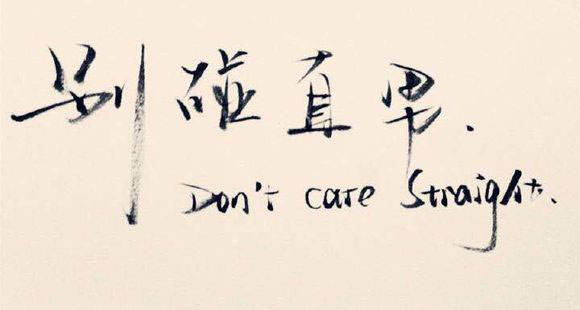 别碰直男.
Don't care Straight.